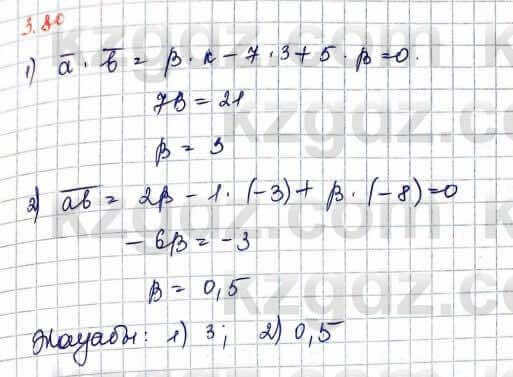 3.80
1) a̅ · b̅ = β · 2 − 7 · 3 + 5 · β = 0.
7β = 21
β = 3
2) a̅b̅ = 2β − 1 · (−3) + β · (−8) = 0
− 6β = −3
β = 0,5
Жауабы: 1) 3; 2) 0,5
kzgdz.com